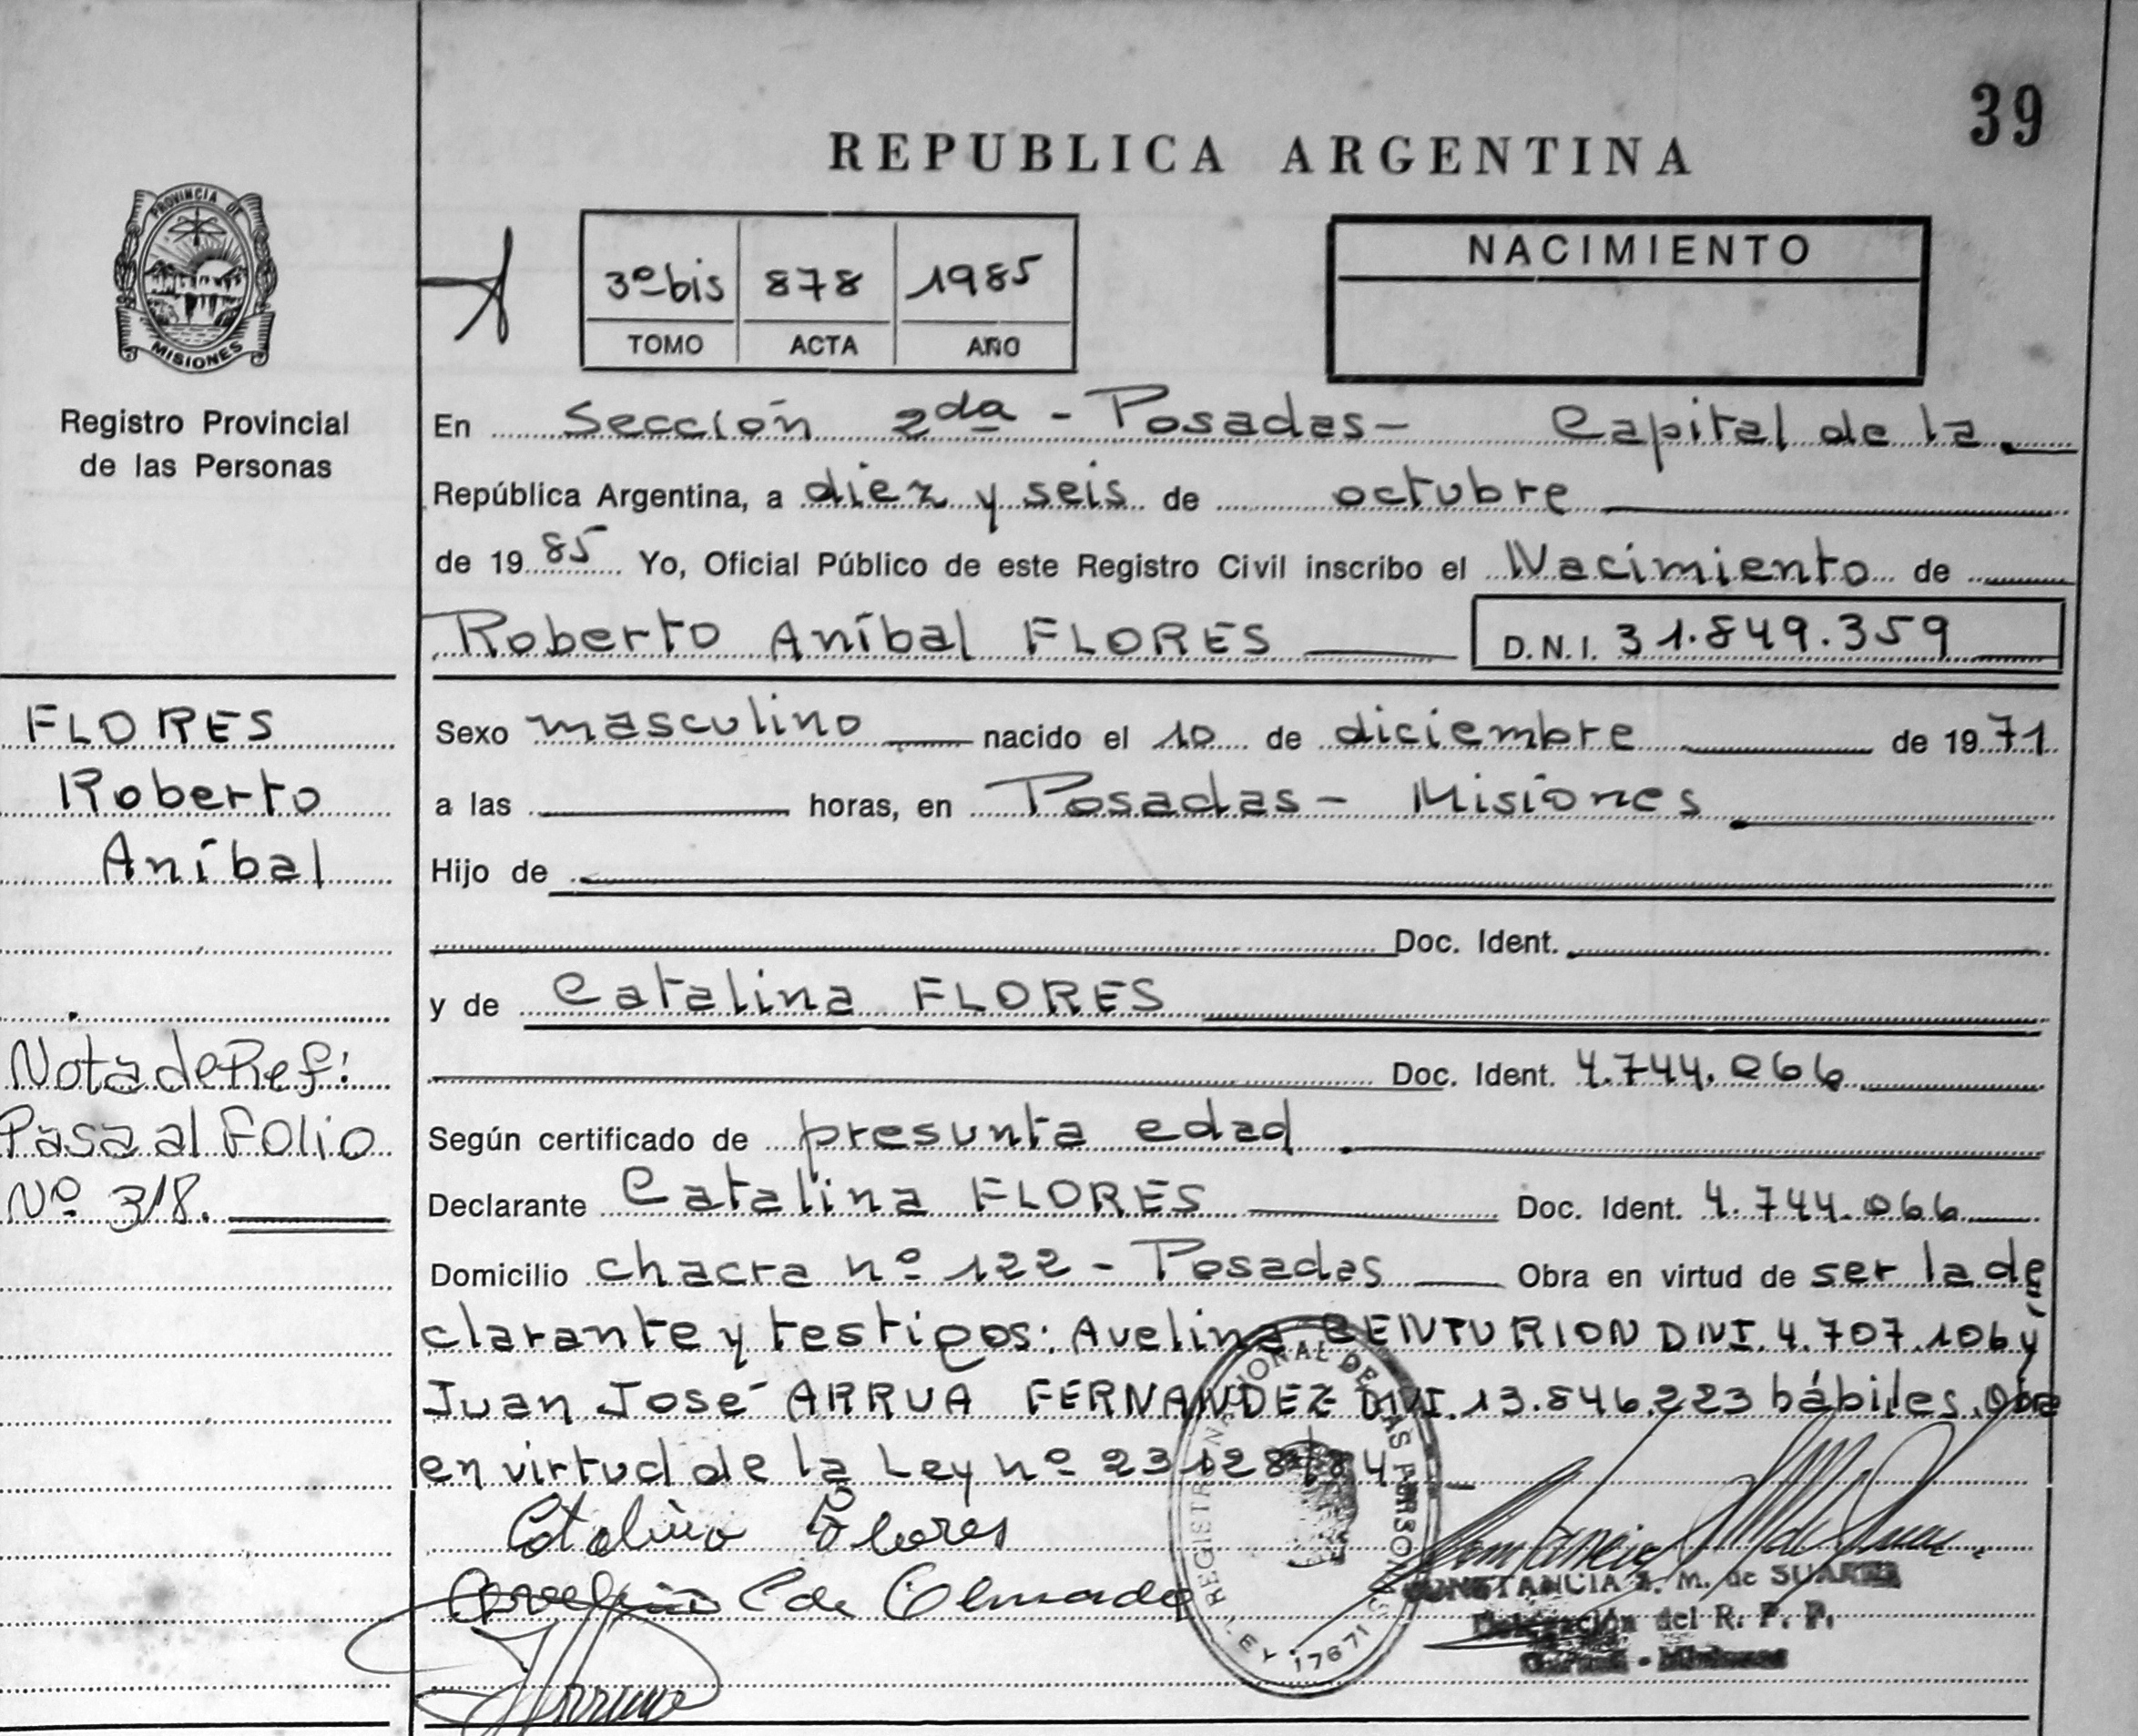 39
REPUBLICA ARGENTINA
PROVINCIA DE
MISIONES
Registro Provincial
de las Personas
3º bis 878 1985
TOMO ACTA AÑO
NACIMIENTO
En Sección 2da - Posadas - Capital de la
República Argentina, a diez y seis de octubre
de 1985 Yo, Oficial Público de este Registro Civil inscribo el Nacimiento de
Roberto Aníbal FLORES D.N.I. 31.849.359
FLORES
Roberto
Aníbal
Nota de Ref:
Pasa al folio
Nº 318.
Sexo masculino nacido el 10 de diciembre de 1971
a las horas, en Posadas - Misiones
Hijo de
Doc. Ident.
y de Catalina FLORES
Doc. Ident. 4.744.066
Según certificado de presunta edad
Declarante Catalina FLORES Doc. Ident. 4.744.066
Domicilio chacra nº 122 - Posadas Obra en virtud de ser la de
clarante y testigos: Avelina CENTURION DNI. 4.707.106 y
Juan José ARRUA FERNANDEZ DNI. 13.846.223 hábiles. Obra
en virtud de la Ley nº 23128/84
Catalina Flores
C de Olmedo
REGISTRO NACIONAL DE LAS PERSONAS
LEY 17671
CONSTANCIA M. de SUAREZ
Delegación del R. P. P.